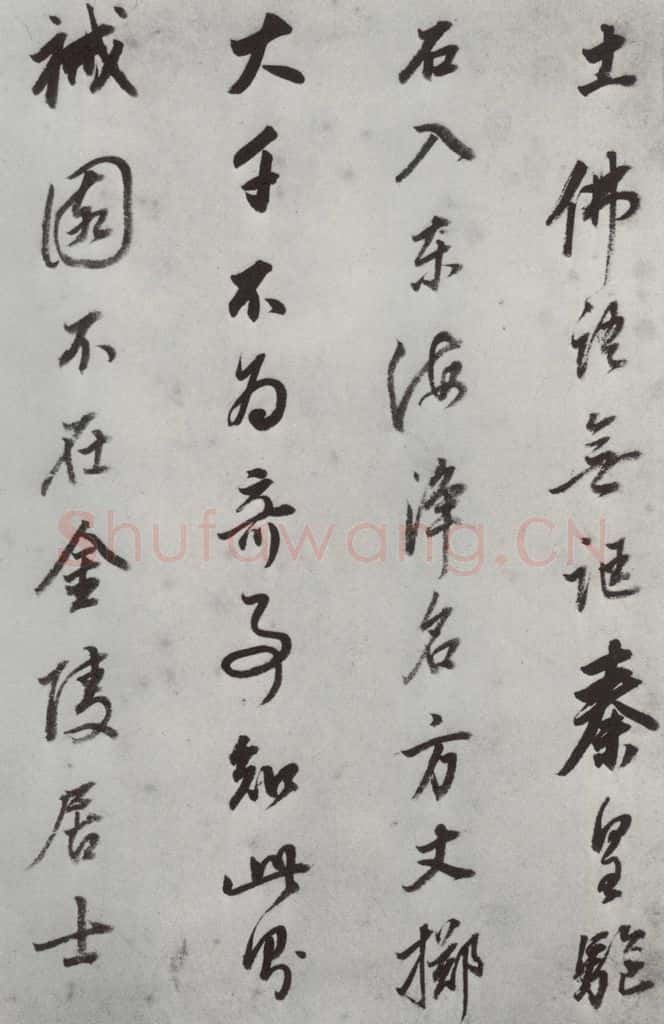 土佛語無誑秦皇驅
石入東海淨名方丈擲
大千不為奇事知此界
緘園不在金陵居士
Shufawang.CN